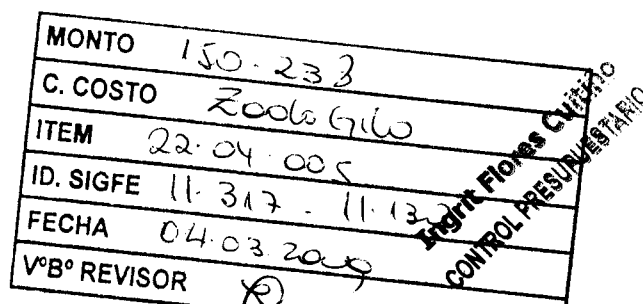 MONTO 150.233
C. COSTO
ITEM 22.04.005
ID. SIGFE 11.317 - 11.13
FECHA 04.03.2009
VºBº REVISOR
Ingrit Flores Cuitiño
CONTROL PRESUPUESTARIO